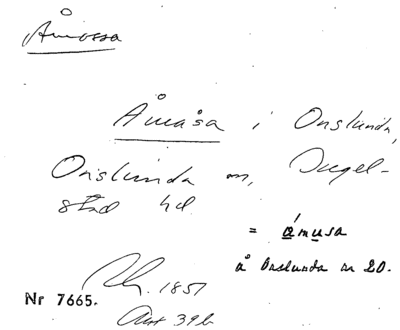 Åmossa
Åmåsa i Onslunda,
Onslunda sn, Ingel-
stad hd.
= ámusa
å Onslunda nr 20.
1857
Nr 7665.